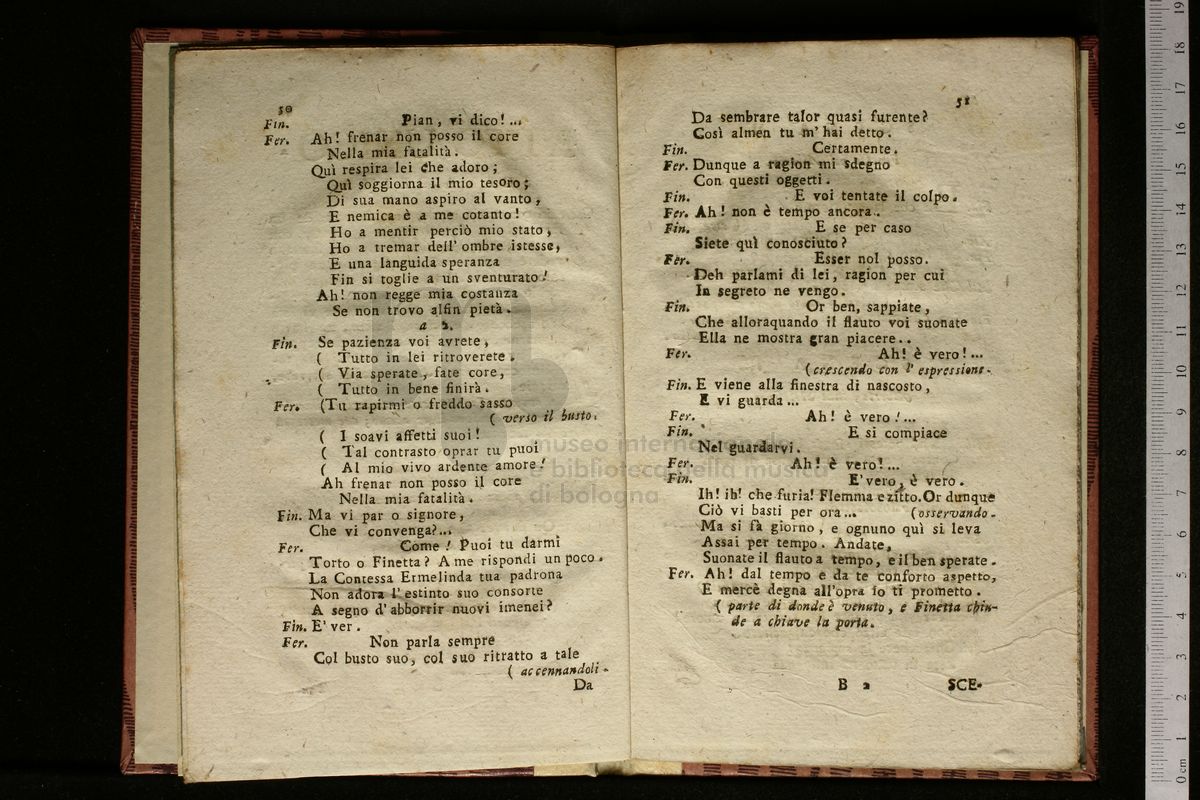 50
Fin. Pian, vi dico!...
Fer. Ah! frenar non posso il core
Nella mia fatalità.
Quì respira lei che adoro;
Quì soggiorna il mio tesoro;
Di sua mano aspiro al vanto,
E nemica è a me cotanto!
Ho a mentir perciò mio stato,
Ho a tremar dell' ombre istesse,
E una languida speranza
Fin si toglie a un sventurato!
Ah! non regge mia costanza
Se non trovo alfin pietà.
a 2.
Fin. Se pazienza voi avrete,
( Tutto in lei ritroverete.
( Via sperate, fate core,
( Tutto in bene finirà.
Fer. (Tu rapirmi o freddo sasso
( verso il busto.
( I soavi affetti suoi!
( Tal contrasto oprar tu puoi
( Al mio vivo ardente amore!
Ah frenar non posso il core
Nella mia fatalità.
Fin. Ma vi par o signore,
Che vi convenga?...
Fer. Come! Puoi tu darmi
Torto o Finetta? A me rispondi un poco.
La Contessa Ermelinda tua padrona
Non adora l'estinto suo consorte
A segno d'abborrir nuovi imenei?
Fin. E' ver.
Fer. Non parla sempre
Col busto suo, col suo ritratto a tale
( accennandoli.
Da
51
Da sembrare talor quasi furente?
Così almen tu m'hai detto.
Fin. Certamente.
Fer. Dunque a ragion mi sdegno
Con questi oggetti.
Fin. E voi tentate il colpo.
Fer. Ah! non è tempo ancora.
Fin. E se per caso
Siete quì conosciuto?
Fer. Esser nol posso.
Deh parlami di lei, ragion per cui
In segreto ne vengo.
Fin. Or ben, sappiate,
Che alloraquando il flauto voi suonate
Ella ne mostra gran piacere..
Fer. Ah! è vero!...
( crescendo con l' espressione.
Fin. E viene alla finestra di nascosto,
E vi guarda...
Fer. Ah! è vero!...
Fin. E si compiace
Nel guardarvi.
Fer. Ah! è vero!...
Fin. E' vero, è vero.
Ih! ih! che furia! Flemma e zitto. Or dunque
Ciò vi basti per ora... (osservando.
Ma si fà giorno, e ognuno quì si leva
Assai per tempo. Andate,
Suonate il flauto a tempo, e il ben sperate.
Fer. Ah! dal tempo e da te conforto aspetto,
E mercè degna all'opra io ti prometto.
( parte di donde è venuto, e Finetta chiu-
de a chiave la porta.
B 2 SCE-
museo internazionale
e biblioteca della musica
di bologna